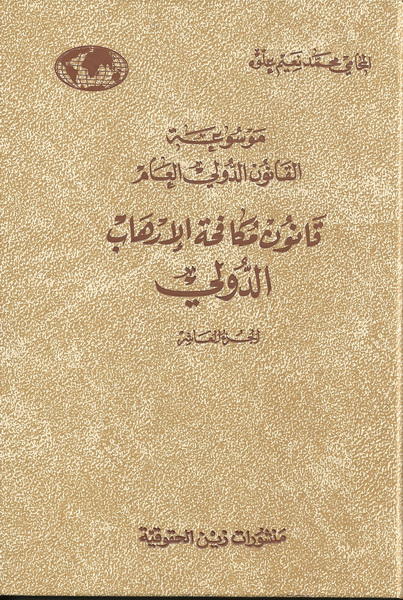 المحامي محمد نعيم علوه
موسوعة
القانون الدولي العام
قانون مكافحة الإرهاب
الدُّولي
الجزء العاشر
منشورات زين الحقوقية